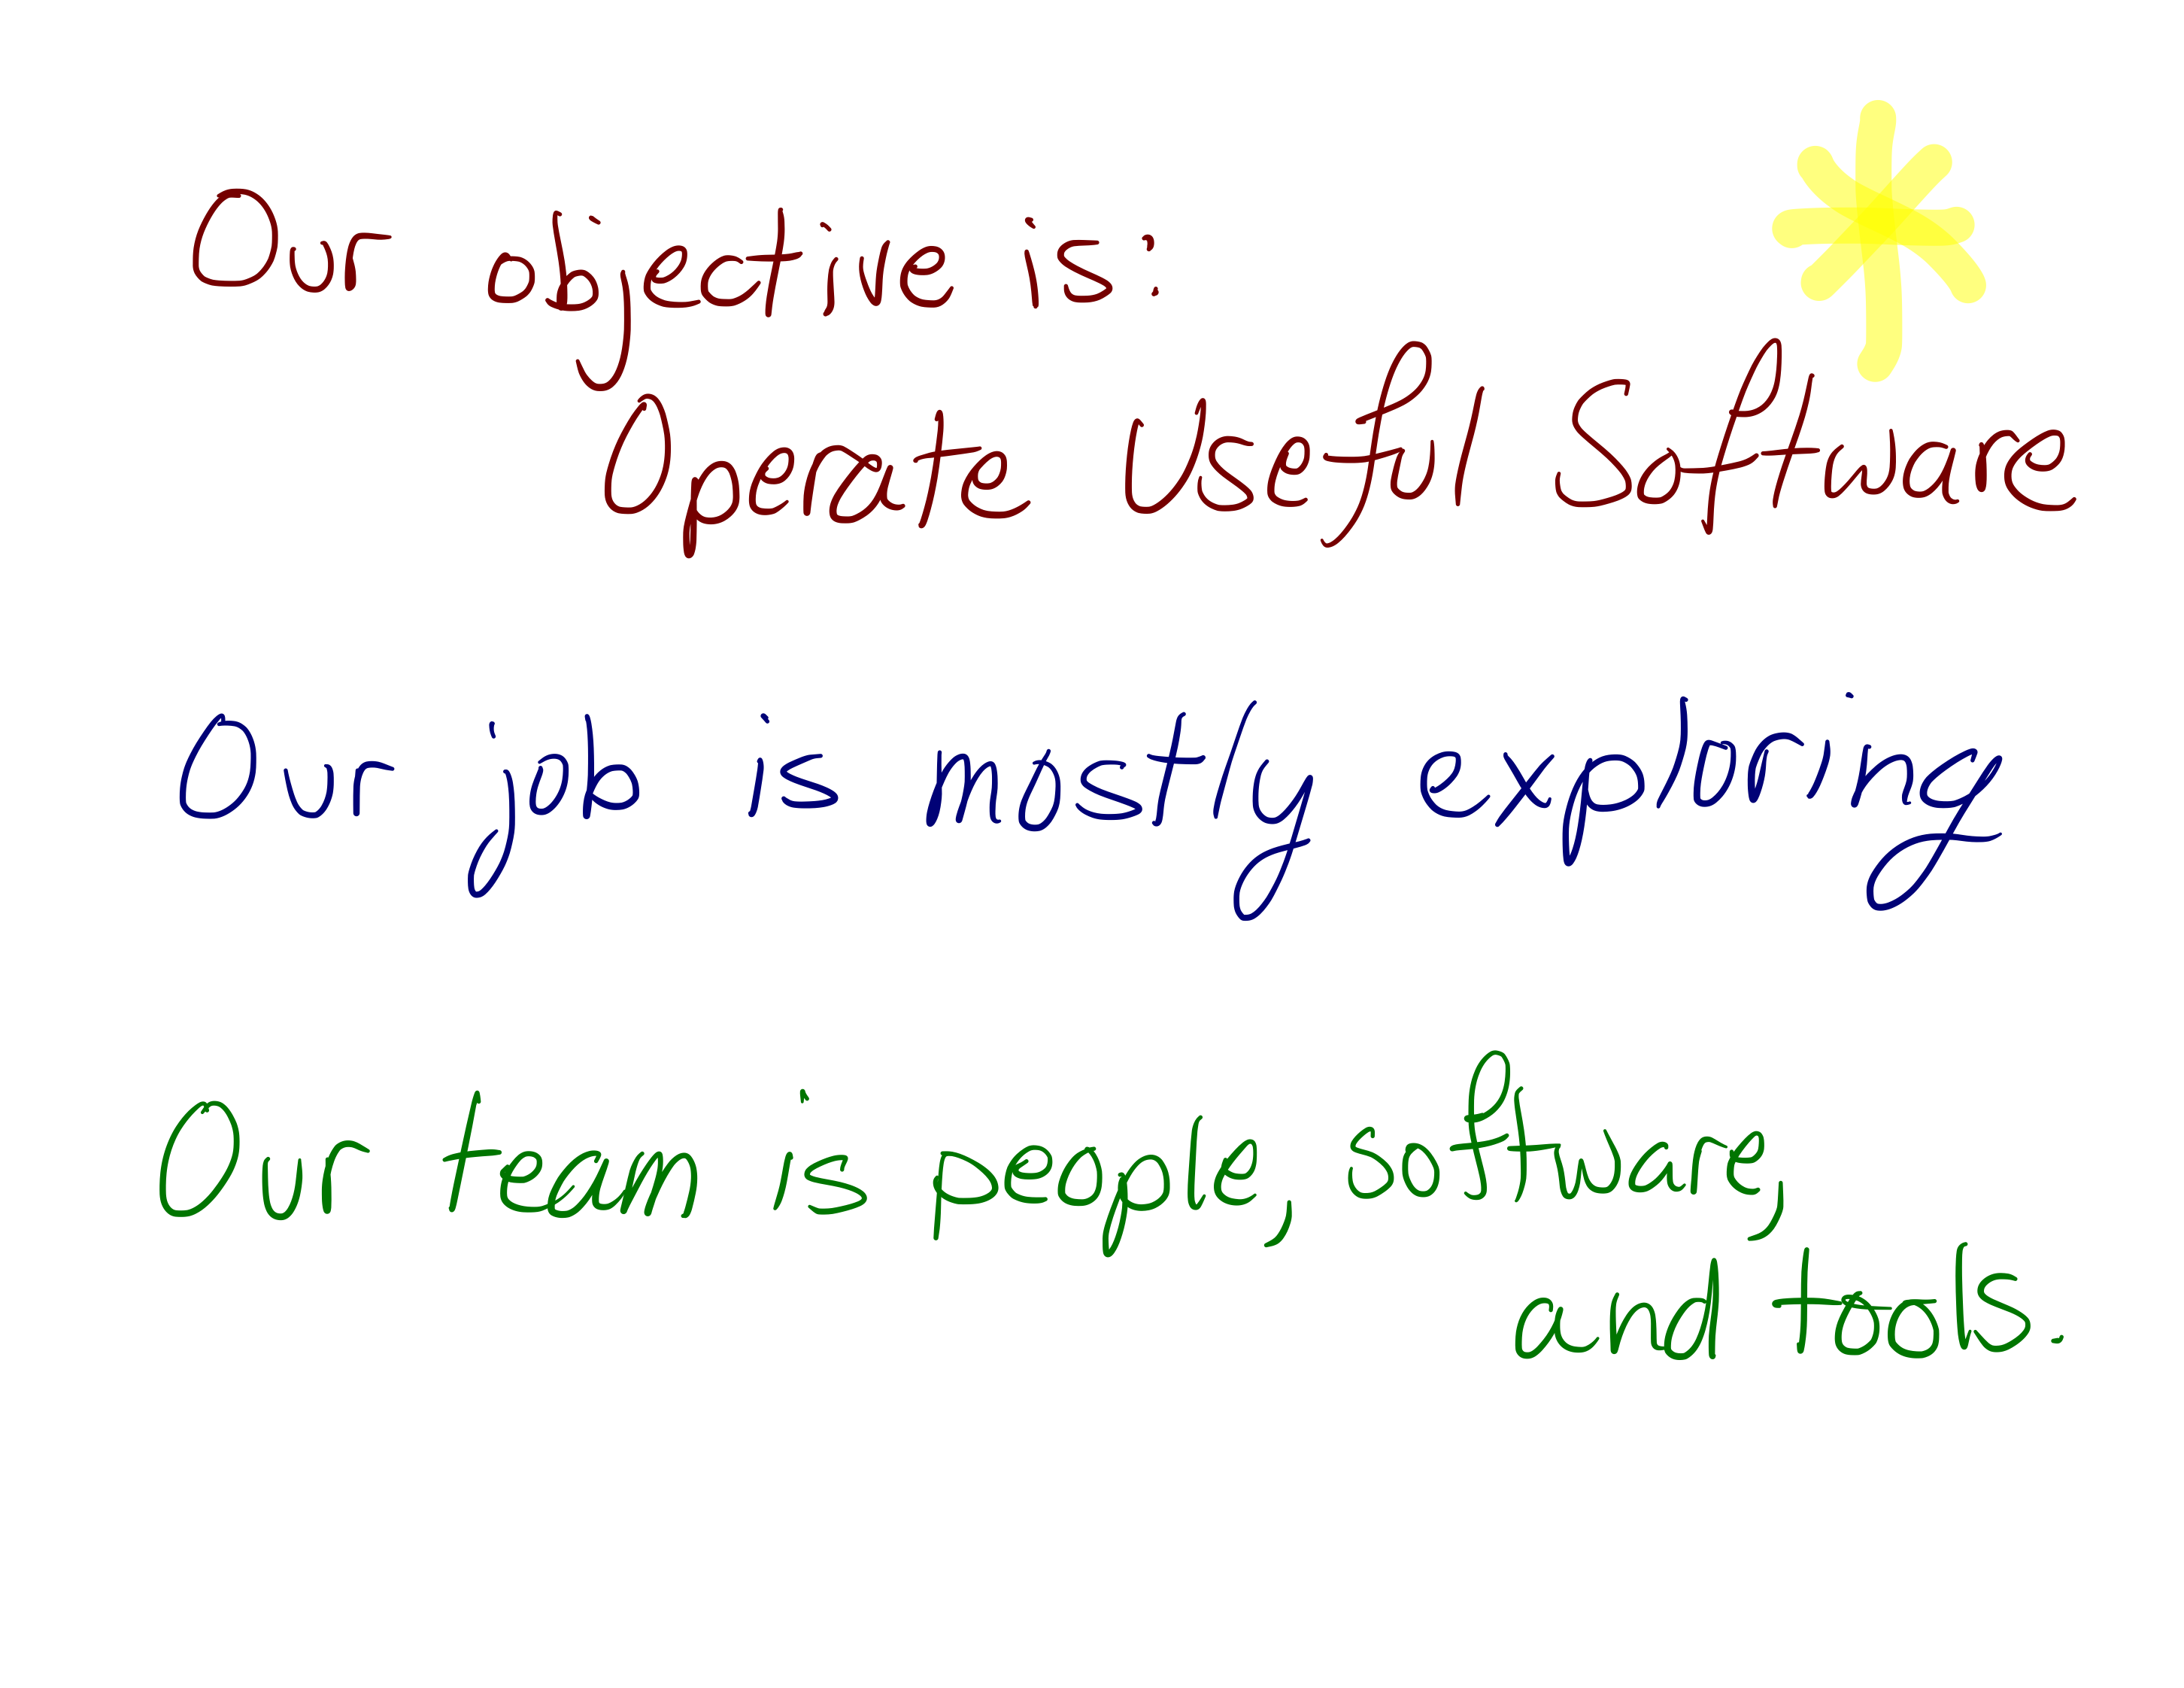 Our objective is:
Operate Useful Software
Our job is mostly exploring
Our team is people, software,
and tools.